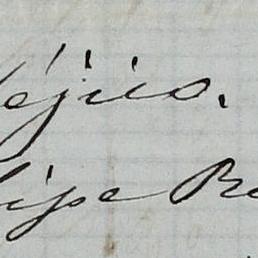 éjico.
lipe Ro